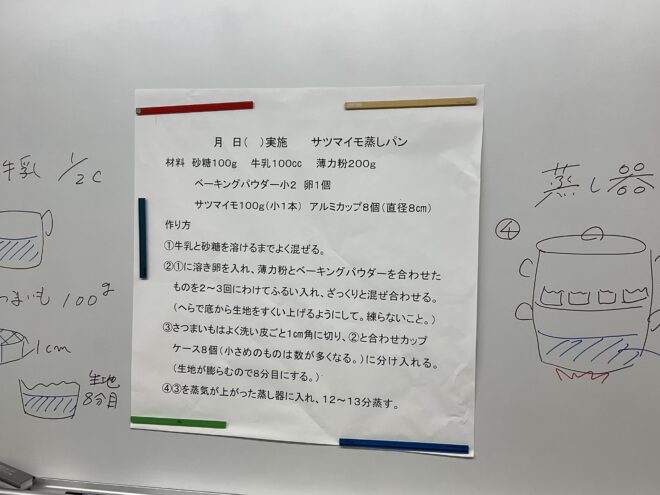 月 日( )実施 サツマイモ蒸しパン
材料 砂糖100g 牛乳100cc 薄力粉200g
ベーキングパウダー小2 卵1個
サツマイモ100g(小1本) アルミカップ8個(直径8㎝)
作り方
①牛乳と砂糖を溶けるまでよく混ぜる。
②①に溶き卵を入れ、薄力粉とベーキングパウダーを合わせた
ものを2~3回にわけてふるい入れ、ざっくりと混ぜ合わせる。
(へらで底から生地をすくい上げるようにして。練らないこと。)
③さつまいもはよく洗い皮ごと1cm角に切り、②と合わせカップ
ケース8個(小さめのものは数が多くなる。)に分け入れる。
(生地が膨らむので8分目にする。)
④③を蒸気が上がった蒸し器に入れ、12~13分蒸す。
牛乳 1/2C
つまいも 100g
1cm
生地
8分目
蒸し器
④